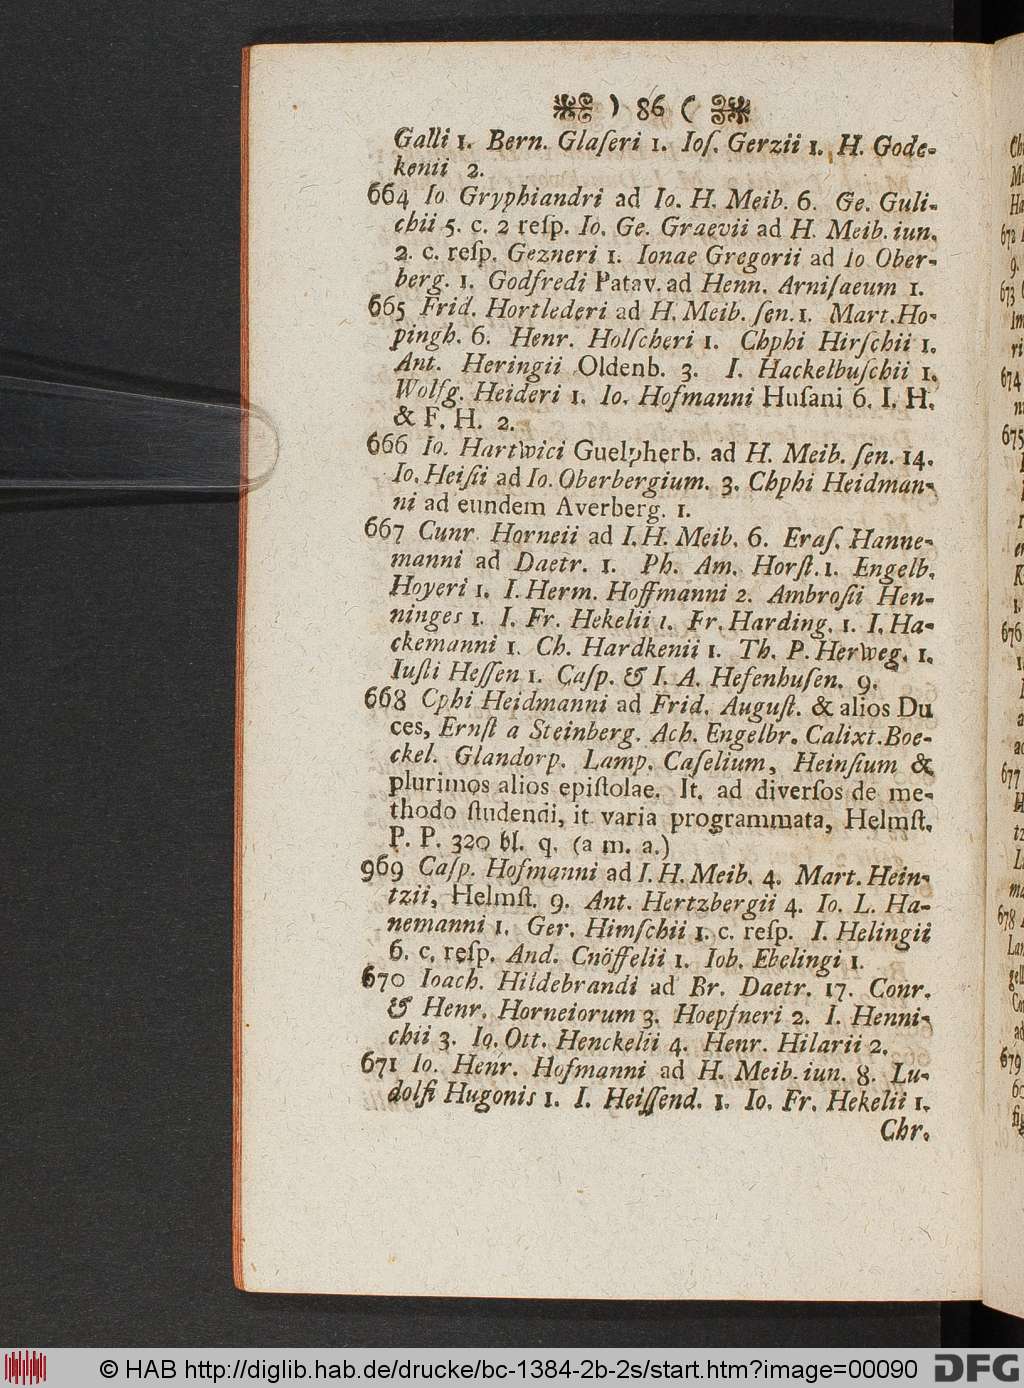 ) 86 (
Galli 1. Bern. Glaſeri 1. Ioſ. Gerzii 1. H. Gode-
kenii 2.
664 Io Gryphiandri ad Io. H. Meib. 6. Ge. Guli-
chii 5. c. 2 reſp. Io. Ge. Graevii ad H. Meib. iun.
2. c. reſp. Gezneri 1. Ionae Gregorii ad Io Ober-
berg. 1. Godfredi Patav. ad Henn. Arniſaeum 1.
665 Frid. Hortlederi ad H. Meib. ſen. 1. Mart. Ho-
pingh. 6. Henr. Holſcheri 1. Chphi Hirſchii 1.
Ant. Heringii Oldenb. 3. I. Hackelbuſchii 1.
Wolfg. Heideri 1. Io. Hofmanni Huſani 6. I. H.
& F. H. 2.
666 Io. Hartwici Guelpherb. ad H. Meib. ſen. 14.
Io. Heiſii ad Io. Oberbergium. 3. Chphi Heidman-
ni ad eundem Averberg. 1.
667 Cunr Horneii ad I. H. Meib. 6. Eraſ. Hanne-
manni ad Daetr. 1. Ph. Am. Horſt. 1. Engelb.
Hoyeri 1. I. Herm. Hoffmanni 2. Ambroſii Hen-
ninges 1. I. Fr. Hekelii 1. Fr. Harding. 1. I. Ha-
ckemanni 1. Ch. Hardkenii 1. Th. P. Herweg. 1.
Iuſti Heſſen 1. Caſp. & I. A. Heſenhuſen. 9.
668 Cphi Heidmanni ad Frid. Auguſt. & alios Du
ces, Ernſt a Steinberg. Ach. Engelbr. Calixt. Boe-
ckel. Glandorp. Lamp. Caſelium, Heinſium &
plurimos alios epiſtolae. It. ad diverſos de me-
thodo ſtudendi, it varia programmata, Helmſt.
P. P. 320 bl. q. (a m. a.)
969 Caſp. Hofmanni ad I. H. Meib. 4. Mart. Hein-
tzii, Helmſt. 9. Ant. Hertzbergii 4. Io. L. Ha-
nemanni 1. Ger. Himſchii 1. c. reſp. I. Helingii
6. c. reſp. And. Cnöffelii 1. Iob. Ebelingi 1.
670 Ioach. Hildebrandi ad Br. Daetr. 17. Conr.
& Henr. Horneiorum 3. Hoepfneri 2. I. Henni-
chii 3. Io. Ott. Henckelii 4. Henr. Hilarii 2.
671 Io. Henr. Hofmanni ad H. Meib. iun. 8. Lu-
dolfi Hugonis 1. I. Heiſſend. 1. Io. Fr. Hekelii 1.
Chr.
672
9.
673
674
675
1.
676
677
678
679
© HAB http://diglib.hab.de/drucke/bc-1384-2b-2s/start.htm?image=00090
DFG